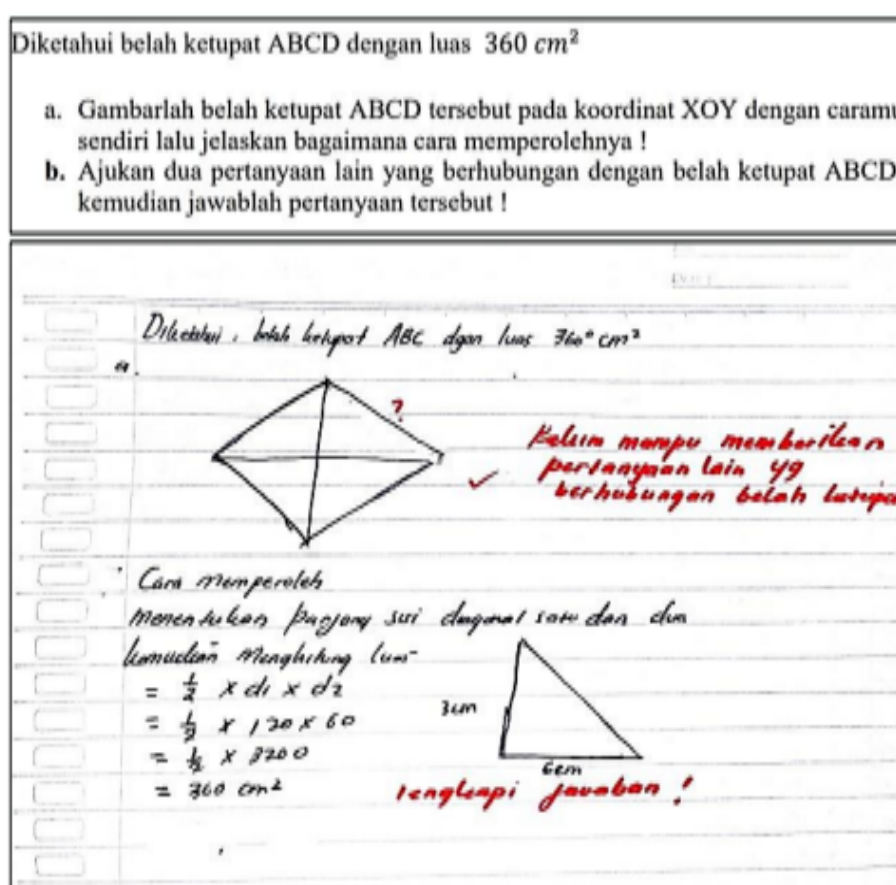 Diketahui belah ketupat ABCD dengan luas 360 cm²
a. Gambarlah belah ketupat ABCD tersebut pada koordinat XOY dengan caramu
sendiri lalu jelaskan bagaimana cara memperolehnya !
b. Ajukan dua pertanyaan lain yang berhubungan dengan belah ketupat ABCD
kemudian jawablah pertanyaan tersebut !
Diketahui, belah ketupat ABC dgan luas 360° cm²
a.
?
Belum mampu memberikan
pertanyaan lain yg
berhubungan belah
Cara memperoleh
menentukan panjang sisi diagonal satu dan dua
kemudian menghitung luas
= 1/2 x d1 x d2
= 1/2 x 120 x 60
= 1/2 x
= 360 cm²
3cm
6cm
lengkapi jawaban !